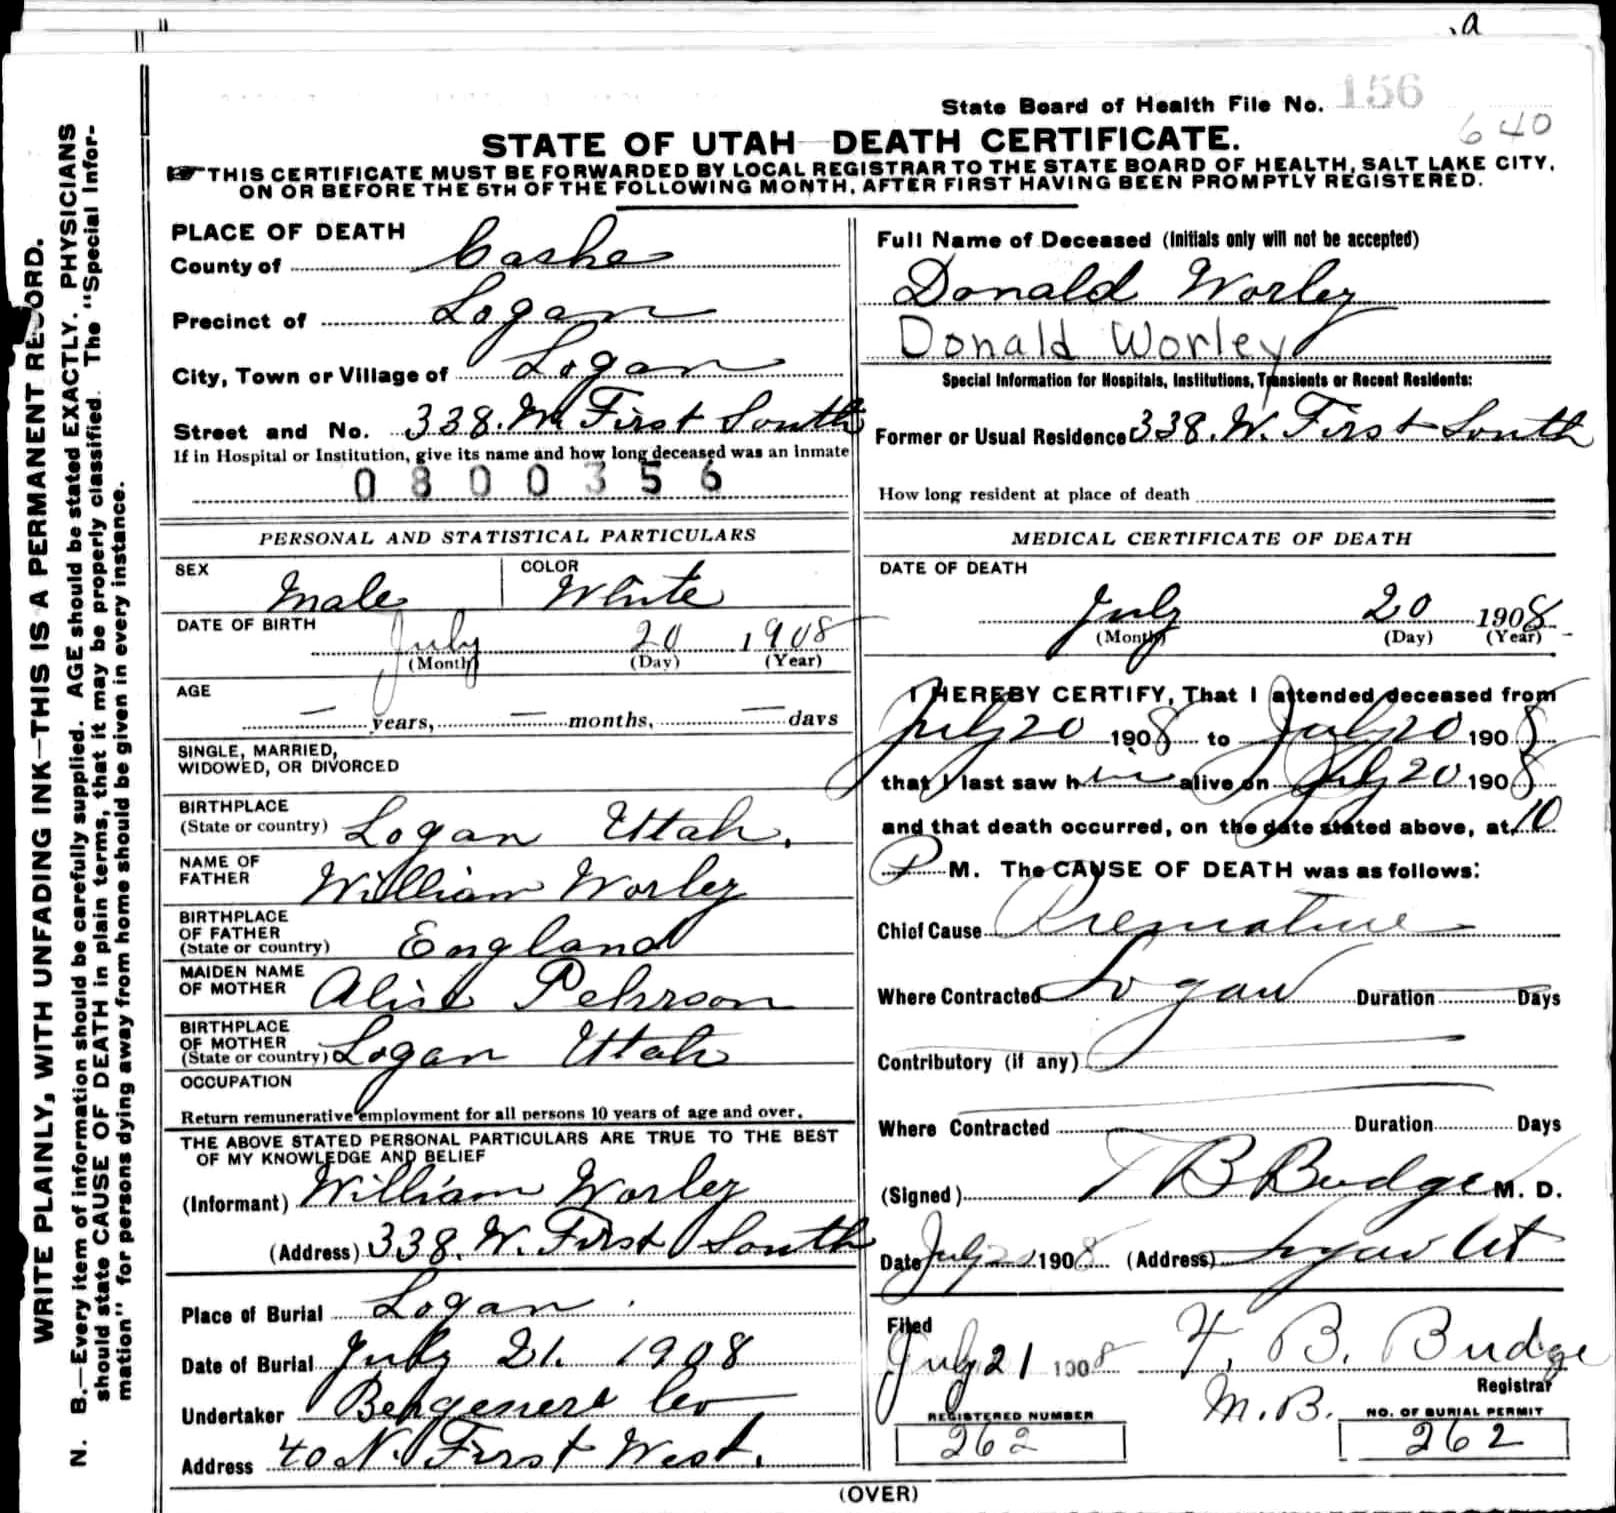 .a
State Board of Health File No. 156
640
STATE OF UTAH—DEATH CERTIFICATE.
THIS CERTIFICATE MUST BE FORWARDED BY LOCAL REGISTRAR TO THE STATE BOARD OF HEALTH, SALT LAKE CITY,
ON OR BEFORE THE 5TH OF THE FOLLOWING MONTH, AFTER FIRST HAVING BEEN PROMPTLY REGISTERED.
WRITE PLAINLY, WITH UNFADING INK—THIS IS A PERMANENT RECORD.
N. B.—Every item of information should be carefully supplied. AGE should be stated EXACTLY. PHYSICIANS
should state CAUSE OF DEATH in plain terms, that it may be properly classified. The "Special Infor-
mation" for persons dying away from home should be given in every instance.
PLACE OF DEATH
County of Cashe
Precinct of Logan
City, Town or Village of Logan
Street and No. 338. W. First South
If in Hospital or Institution, give its name and how long deceased was an inmate
0800356
PERSONAL AND STATISTICAL PARTICULARS
SEX Male COLOR White
DATE OF BIRTH July 20 1908
(Month) (Day) (Year)
AGE
— years, — months, — days
SINGLE, MARRIED,
WIDOWED, OR DIVORCED
BIRTHPLACE
(State or country) Logan Utah.
NAME OF
FATHER William Worley
BIRTHPLACE
OF FATHER
(State or country) England
MAIDEN NAME
OF MOTHER Alice Pehrson
BIRTHPLACE
OF MOTHER
(State or country) Logan Utah
OCCUPATION
Return remunerative employment for all persons 10 years of age and over.
THE ABOVE STATED PERSONAL PARTICULARS ARE TRUE TO THE BEST
OF MY KNOWLEDGE AND BELIEF
(Informant) William Worley
(Address) 338. W. First South
Place of Burial Logan
Date of Burial July 21. 1908
Undertaker Co
Address 40 N. First West.
Full Name of Deceased (Initials only will not be accepted)
Donald Worley
Donald Worley
Special Information for Hospitals, Institutions, Transients or Recent Residents:
Former or Usual Residence 338. W. First South
How long resident at place of death
MEDICAL CERTIFICATE OF DEATH
DATE OF DEATH
July 20 1908
(Month) (Day) (Year)
I HEREBY CERTIFY, That I attended deceased from
July 20 1908 to July 20 1908
that I last saw him alive on July 20 1908
and that death occurred, on the date stated above, at 10
P M. The CAUSE OF DEATH was as follows:
Chief Cause Premature
Where Contracted Logan Duration Days
Contributory (if any)
Where Contracted Duration Days
(Signed) T B Budge M. D.
Date July 20 1908 (Address) Logan Ut
Filed
July 21 1908 T. B. Budge
Registrar
M.B.
REGISTERED NUMBER
262
NO. OF BURIAL PERMIT
262
(OVER)